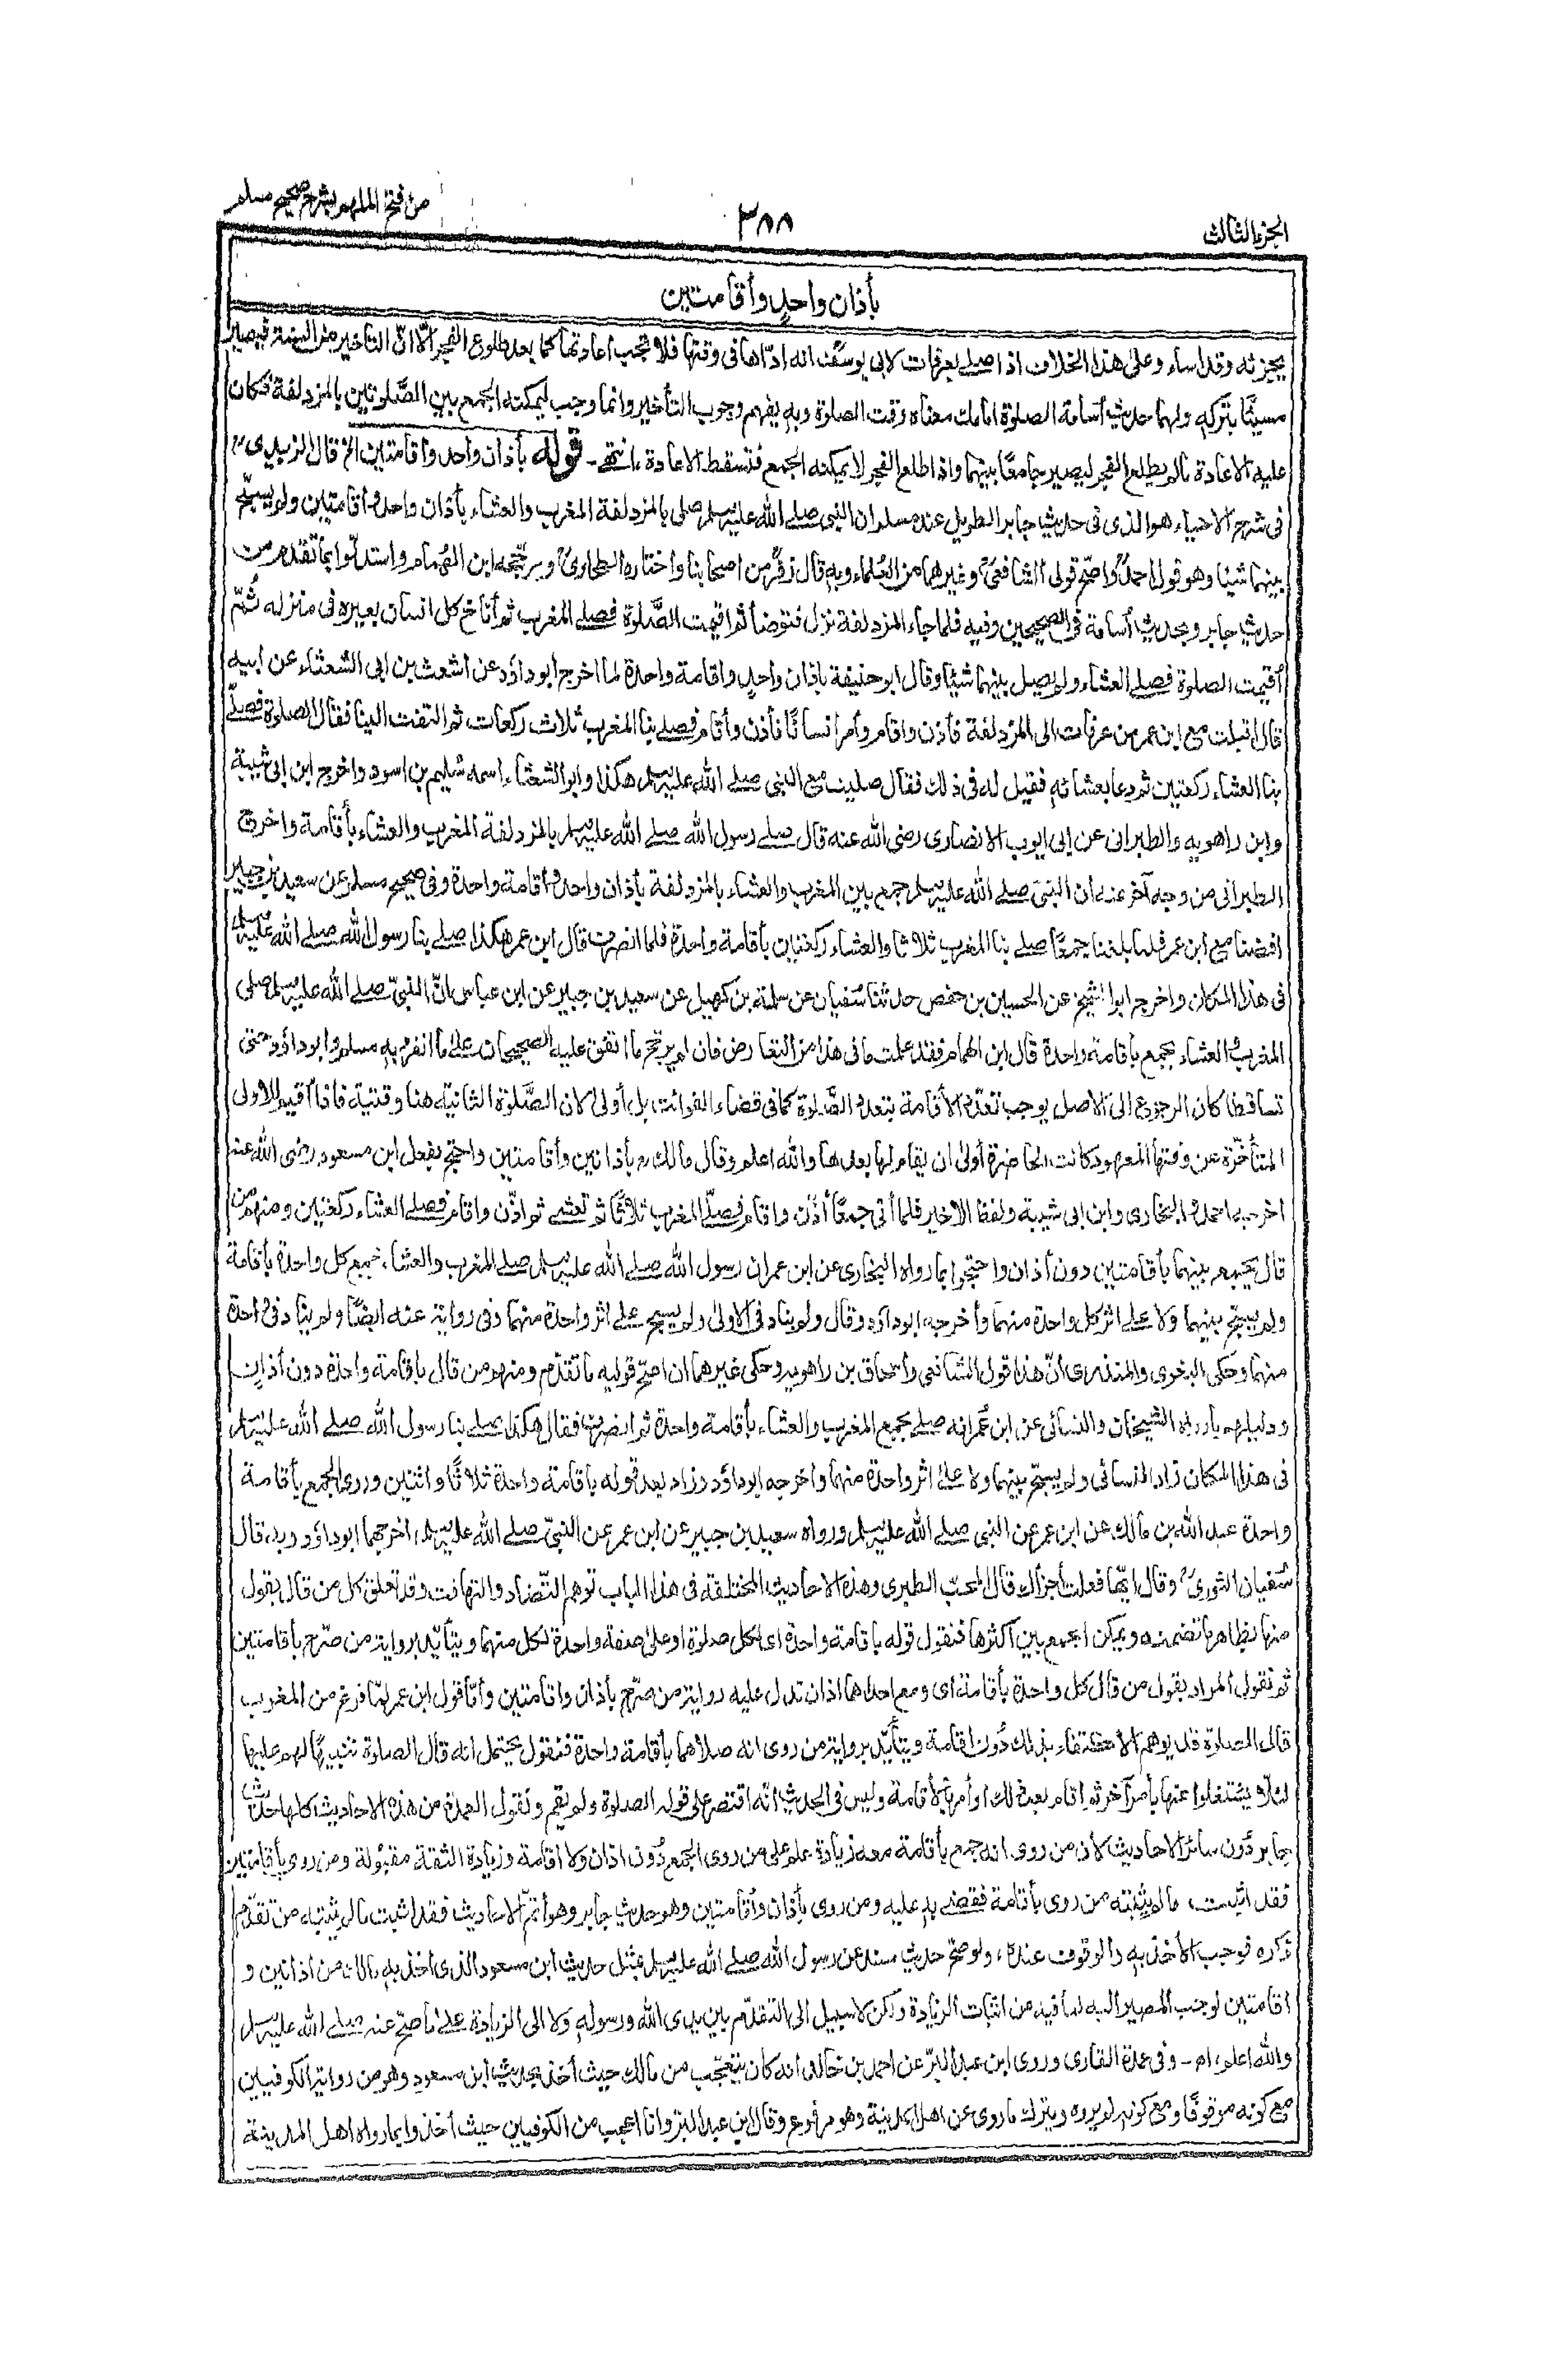 الجزء الثالث
٣٨٨
من فتح الملهم بشرح صحيح مسلم
بأذان واحدٍ وأقامتين
يجزئه وقد اساء وعلى هذا الخلاف اذا صلے بعرفات لابى يوسفؒ انه ادّاها فى وقتها فلا تجب اعادتها كما بعد طلوع الفجر الّا انّ التاخير من السنة فيصير
مسيئًا بتركهٖ ولهما حديث أسامة الصلوة امامك معناه وقت الصلوة وبهٖ يفهم وجوب التأخير وانما وجب ليمكنه الجمع بين الصّلوتين بالمزدلفة فكان
عليه الاعادة مالم يطلع الفجر ليصير جامعًا بينهما واذا طلع الفجر لا يمكنه الجمع فتسقط الاعادة، انتهے - قوله بأذان واحد وأقامتين الخ قال الزبيدىؒ
فى شرح الاحياء هو الذى فى حديث جابر الطويل عند مسلم ان النبى صلے الله عليه وسلم صلى بالمزدلفة المغرب والعشاء بأذان واحد وأقامتين ولم يسبّح
بينهما شيئا وهو قول احمدؒ وأصحّ قولى الشافعىؒ وغيرهما من العُلماء وبهٖ قال زفرؒ من اصحابنا واختاره الطحاوىؒ ويرجّحه ابن الهُمام واستدلّوا بما تقدم من
حديث جابر وبحديث أسامة فى الصحيحين وفيه فلما جاء المزدلفة نزل فتوضأ ثم اقيمت الصّلوة فصلے المغرب ثم أناخ كل انسان بعيره فى منزله ثُمّ
أقيمت الصلوة فصلے العشاء ولم يصل بينهما شيئا وقال ابوحنيفة باذان واحدٍ واقامة واحدة لما اخرج ابوداؤد عن اشعث بن ابى الشعثاء عن ابيه
قال اقبلت مع ابن عمر من عرفات الى المزدلفة فأذن واقام وأمر انسانًا فأذن وأقام فصلے بنا المغرب ثلاث ركعات ثم التفت الينا فقال الصلوة فصلّے
بنا العشاء ركعتين ثم دعا بعشائهٖ فقيل له فى ذلك فقال صليت مع النبى صلے الله عليه وسلم هكذا وابو الشعثاء اسمه سُليم بن اسود واخرج ابن ابى شيبة
وابن راهويهٖ والطبرانى عن ابى ايوب الانصارى رضى الله عنه قال صلے رسول الله صلے الله عليه وسلم بالمزدلفة المغرب والعشاء بأقامة واخرج
الطبرانى من وجه آخر عنه ان النبى صلے الله عليه وسلم جمع بين المغرب والعشاء بالمزدلفة بأذان واحد وأقامة واحدة وفى صحيح مسلم عن سعيد بن جبير
افضنا مع ابن عمر فلما بلغنا جمعًا صلے بنا المغرب ثلاثا والعشاء ركعتين بأقامة واحدة فلما انصرف قال ابن عمر هكذا صلے بنا رسول الله صلے الله عليه وسلم
فى هذا المكان واخرج ابو الشيخ عن الحسين بن حفص حدثنا سُفيان عن سلمة بن كهيل عن سعيد بن جبير عن ابن عباس انّ النبىّ صلے الله عليه وسلم صلى
المغرب والعشاء بجمع بأقامة واحدة قال ابن الهمام فقد علمت ما فى هذا من التعارض فان لم يرجّح ما اتفق عليه الصحيحان على ما انفرد بهٖ مسلم وابوداؤد حتى
تساقطا كان الرجوع الى الاصل يوجب تعدّد الأقامة بتعدد الصّلوة كما فى قضاء الفوائت، بل أولى لان الصّلوة الثانية هنا وقتية فاذا أقيم للاولى
المتأخّرة عن وقتها المعهود كانت الحاضرة أولى ان يقام لها بعدها والله اعلم وقال مالكؒ بأذانين وأقامتين واحتج بفعل ابن مسعود رضى الله عنه
اخرجه احمد والبخارى وابن ابى شيبة ولفظ الاخير فلما أتى جمعًا أذّن واقام فصلّے المغرب ثلاثًا ثم تعشے ثم اذّن واقام فصلے العشاء ركعتين ومنهم من
قال يجمع بينهما بأقامتين دون أذان واحتجوا بما رواه البخارى عن ابن عمر ان رسول الله صلے الله عليه وسلم صلے المغرب والعشاء بجمع كل واحدة بأقامة
ولم يسبّح بينهما ولا علے اثر كل واحدة منهما وأخرجه ابوداؤد وقال ولم يناد فى الاولى ولم يسبح علے اثر واحدة منهما وفى رواية عنه ايضًا ولم يناد فى واحدة
منهما وحكى البغوى والمنذرى انّ هذا قول الشافعى وأسحاق بن راهويه وحكى غيرهما ان اصحّ قوليه ما تقدّم ومنهم من قال باقامة واحدة دون أذان
ودليلهم ما رواه الشيخان والنسائى عن ابن عُمر انه صلے بجمع المغرب والعشاء بأقامة واحدة ثم انصرف فقال هكذا صلے بنا رسول الله صلے الله عليه وسلم
فى هذا المكان زاد النسائى ولم يسبّح بينهما ولا على اثر واحدة منهما واخرجه ابوداؤد وزاد بعد قوله باقامة واحدة ثلاثًا واثنتين وروى الجمع بأقامة
واحدة عبد الله بن مالك عن ابن عمر عن النبى صلے الله عليه وسلم ورواه سعيد بن جبير عن ابن عمر عن النبىّ صلے الله عليه وسلم، اخرجهما ابوداؤد وبه قال
سُفيان الثورىؒ وقال ايّهما فعلت أجزأك قال المحبّ الطبرى وهذه الاحاديث المختلفة فى هذا الباب توهم التّضاد والتهافت وقد تعلق كل من قال بقول
منها بظاهر ما تضمنه ويمكن الجمع بين أكثرها فنقول قوله باقامة واحدة اى لكل صلوة او على صفة واحدة لكل منهما ويتأيّد برواية من صرّح بأقامتين
ثم نقول المراد بقول من قال كل واحدة بأقامة، أى ومع احداهما اذان تدل عليه رواية من صرّح بأذان واقامتين وأمّا قول ابن عمر لمّا فرغ من المغرب
قال الصلوٰة قد يوهم الاكتفاء بذلك دُون اقامة ويتأيّد برواية من روى انه صلاهما بأقامة واحدة فنقول يحتمل انه قال الصلوة تنبيهًا لهم عليها
لئلّا يشتغلوا عنها بأمرٍ آخر ثم اقام بعد ذلك او أمر بالأقامة وليس فى الحديث انّه اقتصر على قوله الصلوة ولم يقم ونقول العمدة من هذه الاحاديث كلها حديث
جابر دُون سائر الاحاديث لأن من روى انه جمع بأقامة معه زيادة علم على من روى الجمع دُون اذان ولا اقامة وزيادة الثقة مقبُولة ومن روى بأقامتين
فقد اثبت، مالم يثبته من روى بأقامة فقضے بهٖ عليه ومن روى بأذان وأقامتين وهو حديث جابر وهو أتمّ الاحاديث فقد اثبت مالم يثبته من تقدّم
ذكره فوجب الأخذ بهٖ والوقوف عنده، ولو صحّ حديث مسند عن رسول الله صلے الله عليه وسلم بمثل حديث ابن مسعود الذى اخذ بهٖ مالك من اذانين و
اقامتين لوجب المصير اليه لما فيه من اثبات الزيادة ولكن لا سبيل الى التقدّم بين يدى الله ورسولهٖ ولا الى الزيادة علے ما صحّ عنه صلے الله عليه وسلم
والله اعلم، اھ - وفى عمدة القارى وروى ابن عبد البرّ عن احمد بن خالد انه كان يتعجّب من مالك حيث أخذ بحديث ابن مسعود وهو من رواية الكوفيين
مع كونه موقوفًا ومع كونه لم يروه ويترك ما روى عن اهل المدينة وهو مرفوع وقال ابن عبد البرّ وانا اعجب من الكوفيين حيث أخذوا بما رواه اهل المدينة